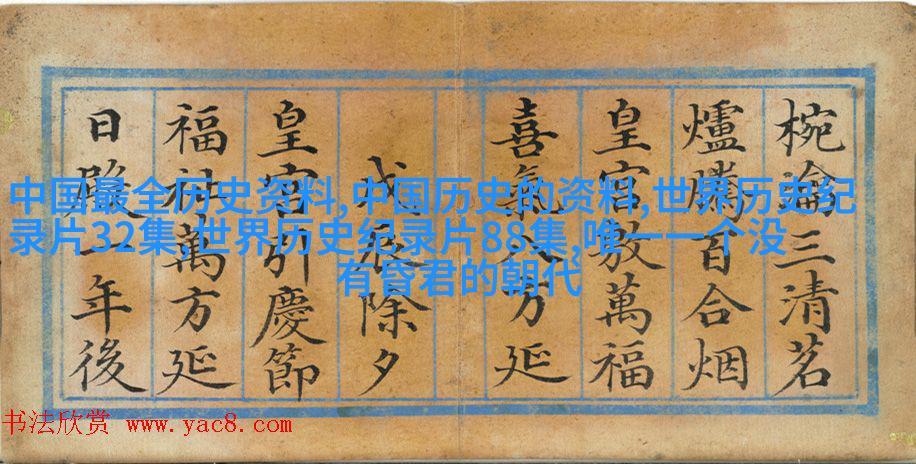 椀瀹三清茗
爐騰百合烟
皇宫敷萬福
喜氣八方延
戊辰除夕
皇宫引慶節
福祉萬方延
日一年後
中国最全历史资料,中国历史的资料,世界历史纪
录片32集,世界历史纪录片88集,唯一一个没
有昏君的朝代
书法欣赏 www.yac8.com